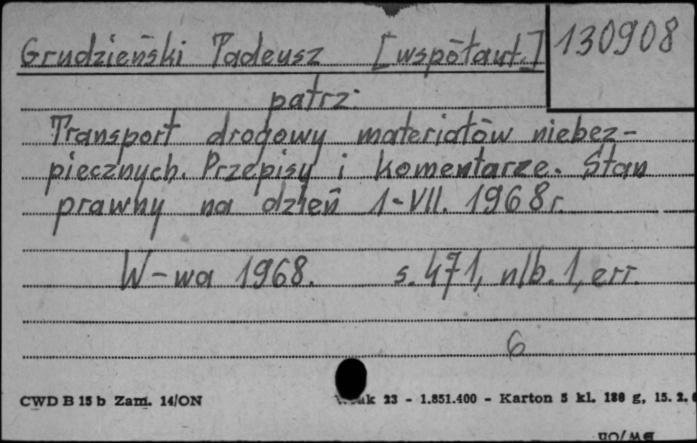 Grudzieński Tadeusz [współaut.] 130908
patrz:
Transport drogowy materiałów niebez-
piecznych. Przepisy i komentarze. Stan
prawny na dzień 1-VII. 1968r.
W-wa 1968. s. 471, nlb. 1, err.
6
CWD B 15 b Zam. 14/ON 23 - 1.851.400 - Karton 5 kl. 180 g, 15. 2.